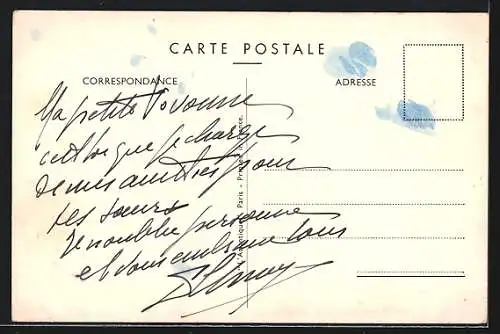 CARTE POSTALE
CORRESPONDANCE
ADRESSE
Ma petite Yvonne
c'est toi que je charge
de mes amitiés pour
tes sœurs
Je n'oublie personne
et vous embrasse tous
Paris - Printed in France.